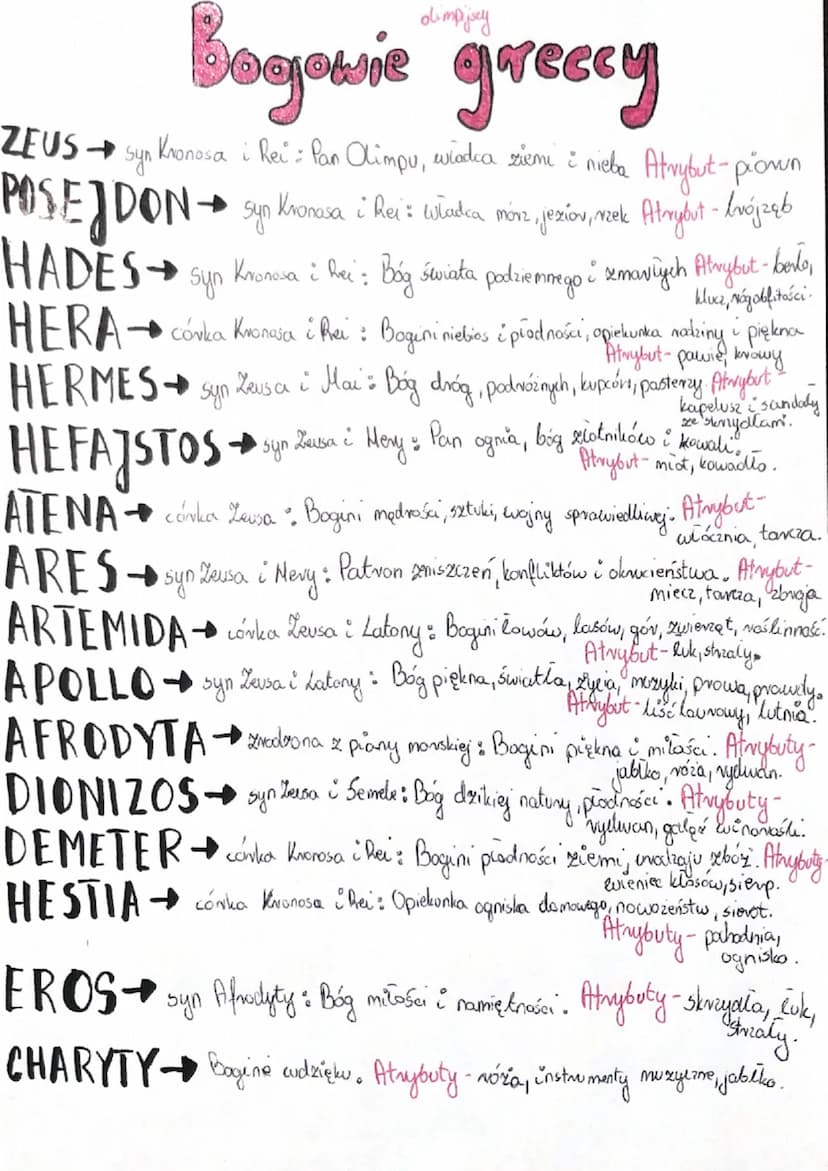 olimpijscy
Bogowie greccy
ZEUS → syn Kronosa i Rei: Pan Olimpu, władca ziemi i nieba Atrybut - piorun
POSEJDON → syn Kronosa i Rei: władca mórz, jezior, rzek Atrybut - trójząb
HADES → syn Kronosa i Rei: Bóg świata podziemnego i zmarłych Atrybut - berło,
klucz, róg obfitości.
HERA → córka Kronosa i Rei: Bogini niebios i płodności, opiekunka rodziny i piękna
Atrybut - pawie, krowy
HERMES → syn Zeusa i Mai: Bóg dróg, podróżnych, kupców, pasterzy. Atrybut -
kapelusz i sandały
ze skrzydłami.
HEFAJSTOS → syn Zeusa i Hery: Pan ognia, bóg złotników i kowali.
Atrybut - młot, kowadło.
ATENA → córka Zeusa: Bogini mądrości, sztuki, wojny sprawiedliwej. Atrybut -
włócznia, tarcza.
ARES → syn Zeusa i Hery: Patron zniszczeń, konfliktów i okrucieństwa. Atrybut -
miecz, tarcza, zbroja
ARTEMIDA → córka Zeusa i Latony: Bogini łowów, lasów, gór, zwierząt, roślinność.
Atrybut - łuk, strzały.
APOLLO → syn Zeusa i Latony: Bóg piękna, światła, życia, muzyki, prawa, prawdy.
Atrybut - liść laurowy, lutnia.
AFRODYTA → zrodzona z piany morskiej: Bogini piękna i miłości. Atrybuty -
jabłko, róża, rydwan.
DIONIZOS → syn Zeusa i Semele: Bóg dzikiej natury, płodności. Atrybuty -
rydwan, gałąź winorośli.
DEMETER → córka Kronosa i Rei: Bogini płodności ziemi, urodzaju zbóż. Atrybuty -
wieniec kłosów, sierp.
HESTIA → córka Kronosa i Rei: Opiekunka ogniska domowego, nowożeństw, sierot.
Atrybuty - pochodnia,
ognisko.
EROS → syn Afrodyty: Bóg miłości i namiętności. Atrybuty - skrzydła, łuk,
strzały.
CHARYTY → Boginie wdzięku. Atrybuty - róża, instrumenty muzyczne, jabłko.